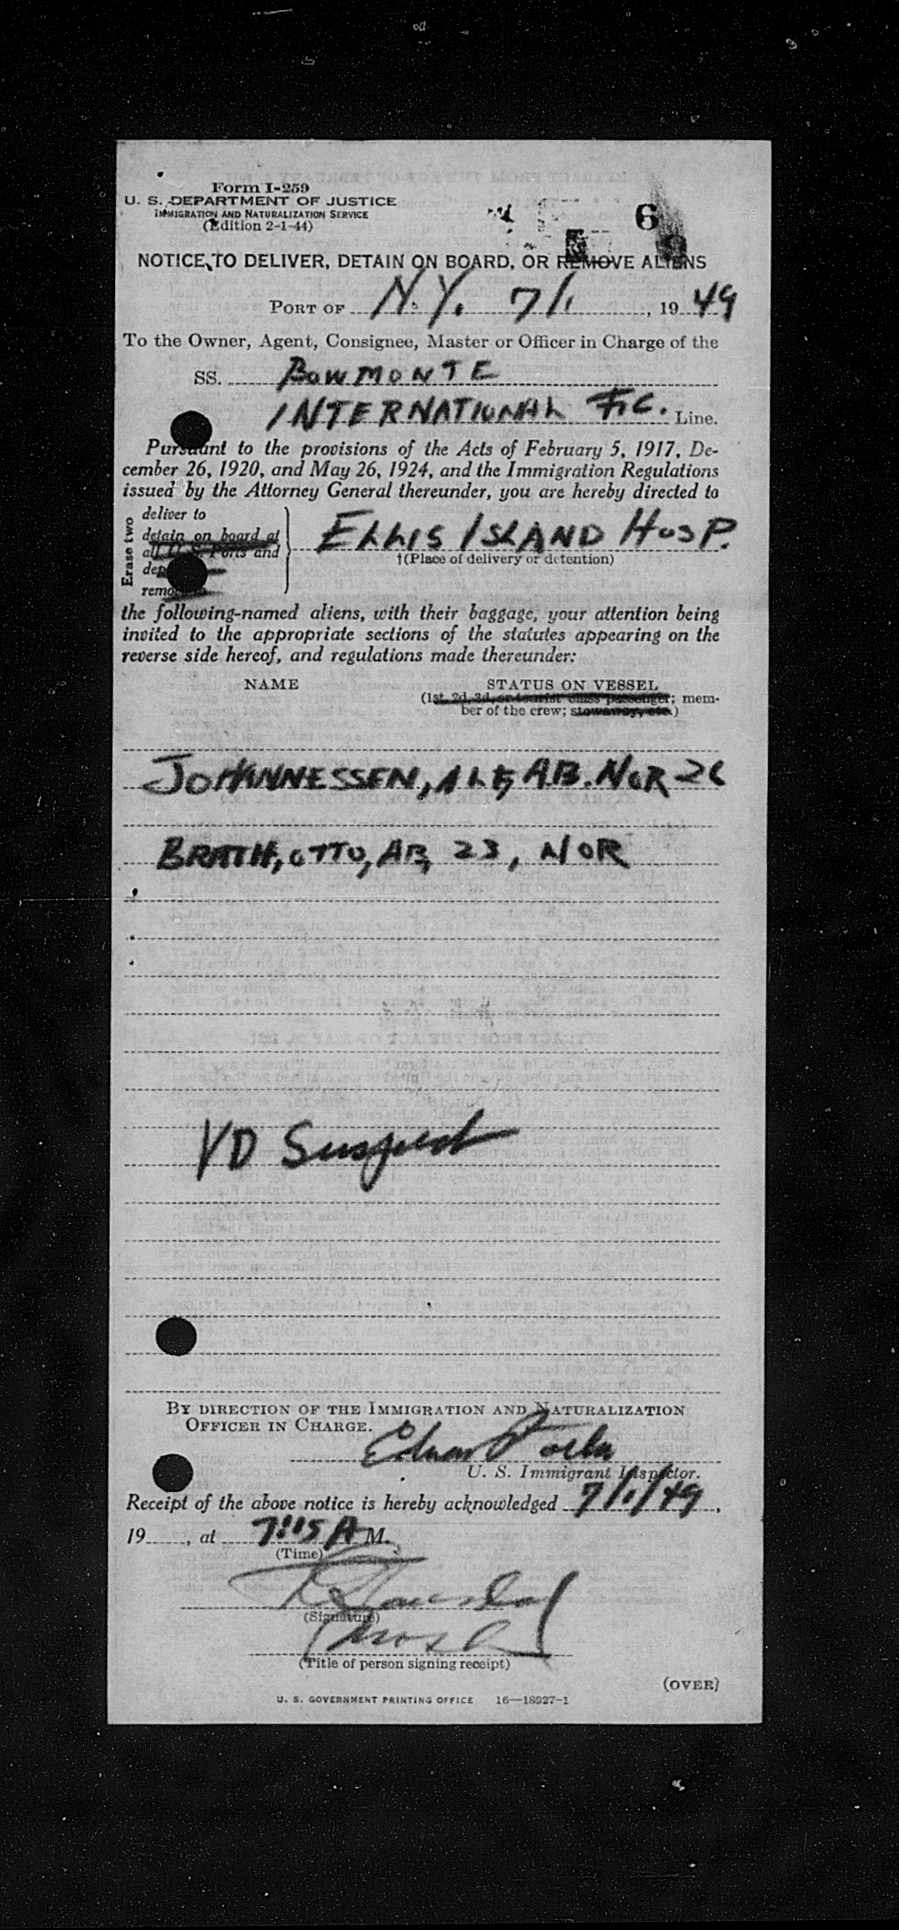 Form I-259
U. S. DEPARTMENT OF JUSTICE
IMMIGRATION AND NATURALIZATION SERVICE
(Edition 2-1-44)
6
NOTICE TO DELIVER, DETAIN ON BOARD, OR REMOVE ALIENS
PORT OF N.Y. 7/1, 1949
To the Owner, Agent, Consignee, Master or Officer in Charge of the
SS. BOWMONTE
INTERNATIONAL Line.
Pursuant to the provisions of the Acts of February 5, 1917, De-
cember 26, 1920, and May 26, 1924, and the Immigration Regulations
issued by the Attorney General thereunder, you are hereby directed to
Erase two
deliver to
detain on board at
all U. S. Ports and
remove
ELLIS ISLAND HOSP.
†(Place of delivery or detention)
the following-named aliens, with their baggage, your attention being
invited to the appropriate sections of the statutes appearing on the
reverse side hereof, and regulations made thereunder:
NAME
STATUS ON VESSEL
(1st, 2d, 3d, or tourist class passenger; mem-
ber of the crew; stowaway, etc.)
JOHANNESSEN, ALF, AB. NOR 26
BRATH, OTTO, AB, 23, NOR
VD Suspect
BY DIRECTION OF THE IMMIGRATION AND NATURALIZATION
OFFICER IN CHARGE.
U. S. Immigrant Inspector.
Receipt of the above notice is hereby acknowledged 7/1/49,
19, at 7:15 A M.
(Time)
(Signature)
(Title of person signing receipt)
(OVER)
U. S. GOVERNMENT PRINTING OFFICE 16—18927-1